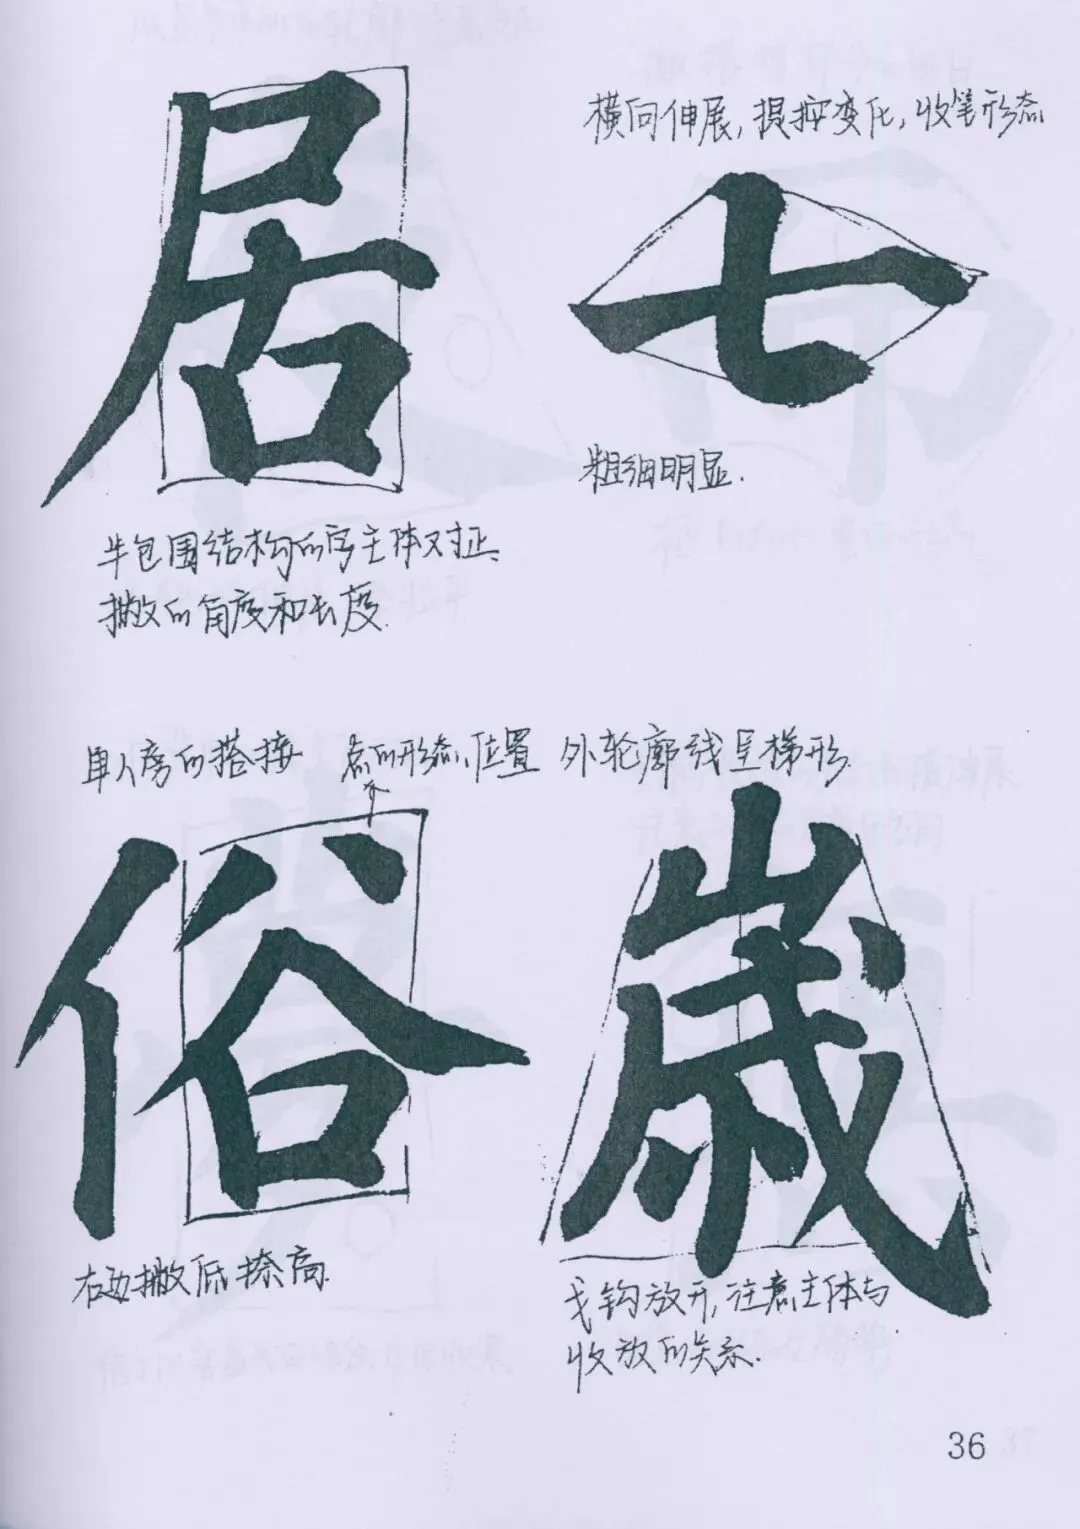 居
横向伸展,提按变化,收笔形态
七
粗细明显.
半包围结构的字主体对正
撇的角度和长度.
单人旁的搭接
点的形态、位置
外轮廓线呈梯形.
俗
歲
右边撇低捺高.
戈钩放开,注意主体与
收放的关系.
36